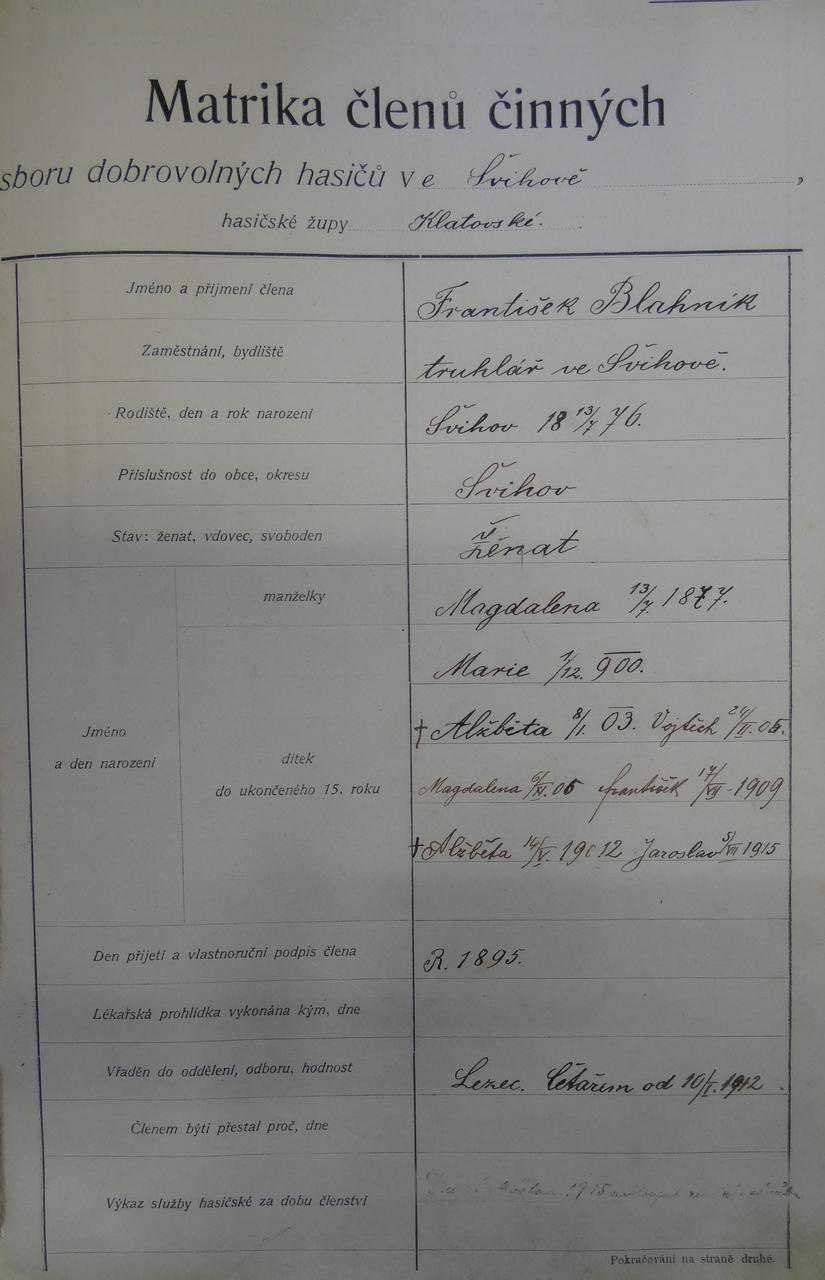 Matrika členů činných
sboru dobrovolných hasičů ve Švihově,
hasičské župy Klatovské.
Jméno a příjmení člena František Blahník
Zaměstnání, bydliště truhlář ve Švihově.
Rodiště, den a rok narození Švihov 18 13/7 76.
Příslušnost do obce, okresu Švihov
Stav: ženat, vdovec, svoboden ženat
manželky Magdalena 13/7. 1877.
Marie 1/12. 900.
Jméno
a den narození
dítek
do ukončeného 15. roku
† Alžběta 8/I. 03. Vojtěch 24/II. 05.
Magdalena 6/XI. 06 František 17/VII - 1909
† Alžběta 14/V. 1912 Jaroslav 5/VII 1915
Den přijetí a vlastnoruční podpis člena R. 1895.
Lékařská prohlídka vykonána kým, dne
Vřaděn do oddělení, odboru, hodnost Lezec. Četařem od 10/I. 1912.
Členem býti přestal proč, dne
Výkaz služby hasičské za dobu členství 1915
Pokračování na straně druhé.